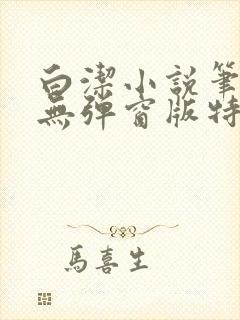 白潔小説筆
無彈窗版特
馬喜生